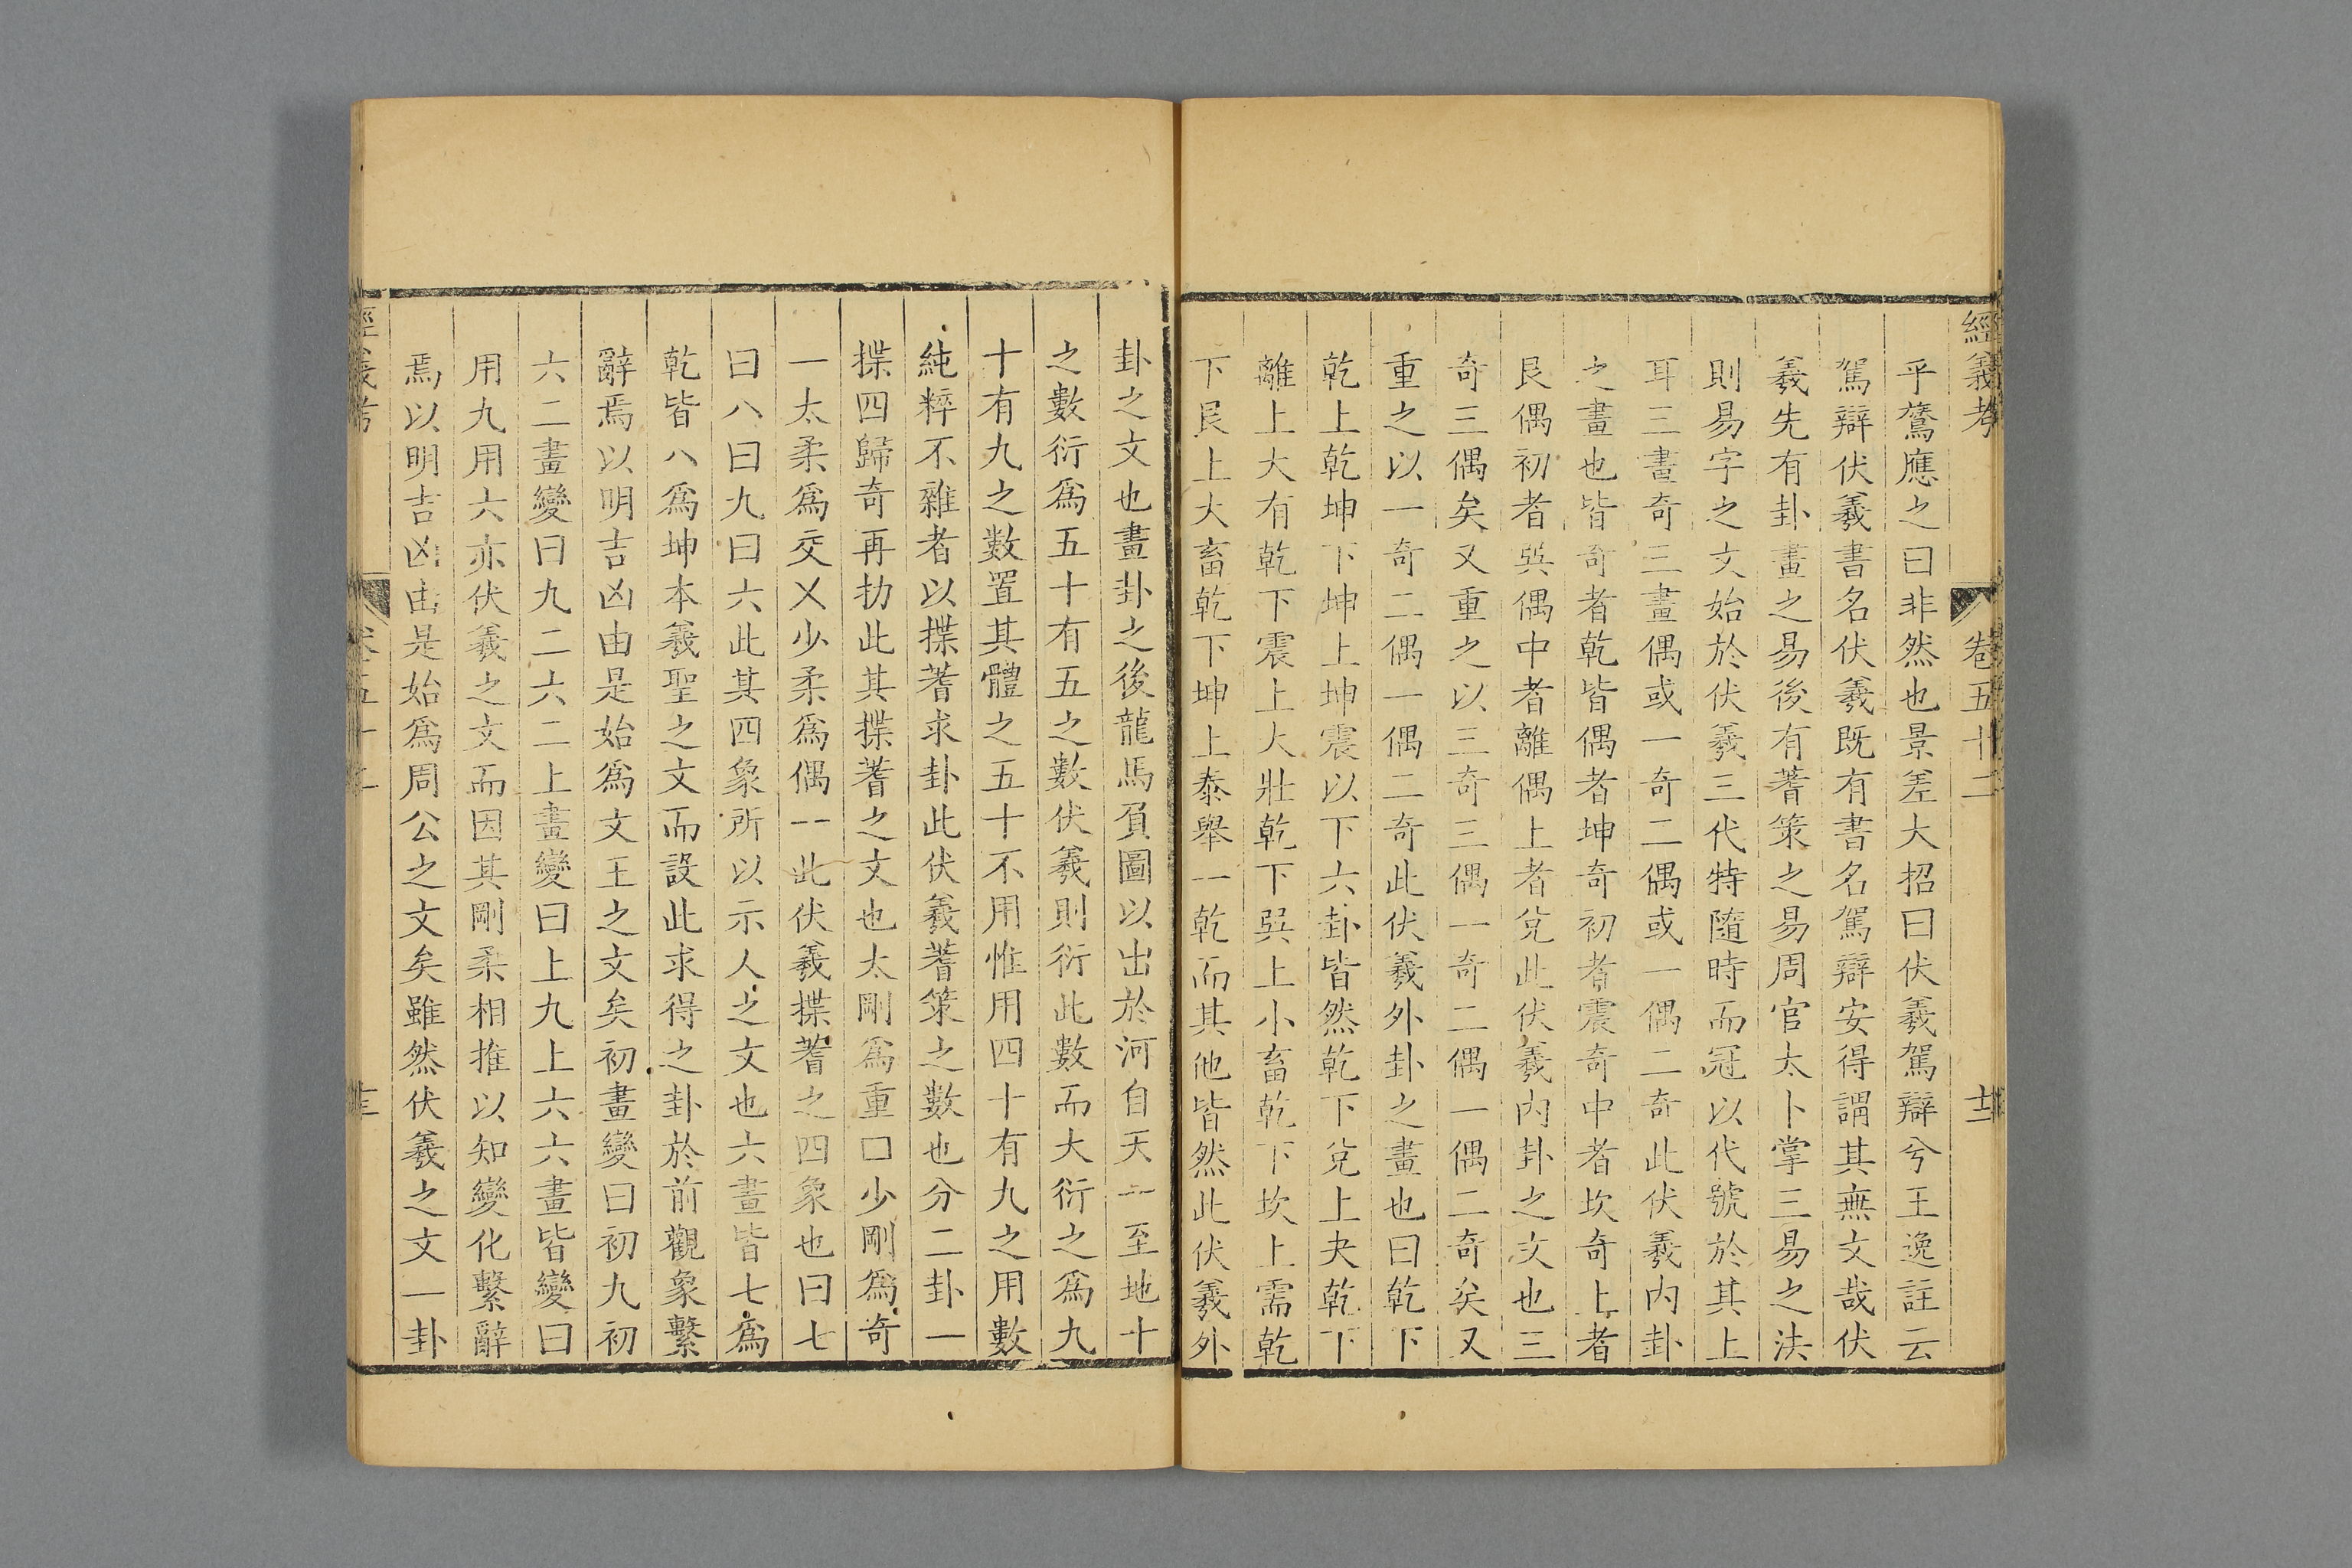 經義考
卷五十二
乎鷟應之曰非然也景差大招曰伏羲駕辯兮王逸註云
駕辯伏羲書名伏羲既有書名駕辯安得謂其無文哉伏
羲先有卦畫之易後有蓍策之易周官太卜掌三易之法
則易字之文始於伏羲三代特隨時而冠以代號於其上
耳三畫奇三畫偶或一奇二偶或一偶二奇此伏羲内卦
之畫也皆奇者乾皆偶者坤奇初者震奇中者坎奇上者
艮偶初者巽偶中者離偶上者兌此伏羲内卦之文也三
奇三偶矣又重之以三奇三偶一奇二偶一偶二奇矣又
重之以一奇二偶一偶二奇此伏羲外卦之畫也曰乾下
乾上乾坤下坤上坤震以下六卦皆然乾下兌上夬乾下
離上大有乾下震上大壯乾下巽上小畜乾下坎上需乾
下艮上大畜乾下坤上泰舉一乾而其他皆然此伏羲外
卦之文也畫卦之後龍馬負圖以出於河自天一至地十
之數衍爲五十有五之數伏羲則衍此數而大衍之爲九
十有九之數置其體之五十不用惟用四十有九之用數
純粹不雜者以揲蓍求卦此伏羲蓍策之數也分二卦一
揲四歸奇再扐此其揲蓍之文也太剛爲重口少剛爲奇
一太柔爲交乂少柔爲偶一一此伏羲揲蓍之四象也曰七
曰八曰九曰六此其四象所以示人之文也六畫皆七爲
乾皆八爲坤本羲聖之文而設此求得之卦於前觀象繫
辭焉以明吉凶由是始爲文王之文矣初畫變曰初九初
六二畫變曰九二六二上畫變曰上九上六六畫皆變曰
用九用六亦伏羲之文而因其剛柔相推以知變化繫辭
焉以明吉凶由是始爲周公之文矣雖然伏羲之文一卦
經義考